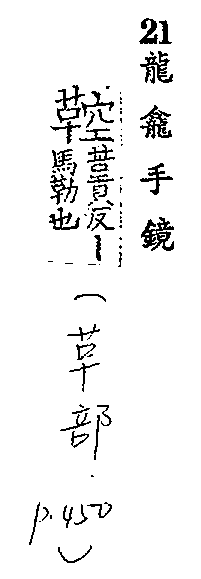 21 龍龕手鏡
鞚 苦貢反｜
馬勒也
(革部 p.450)